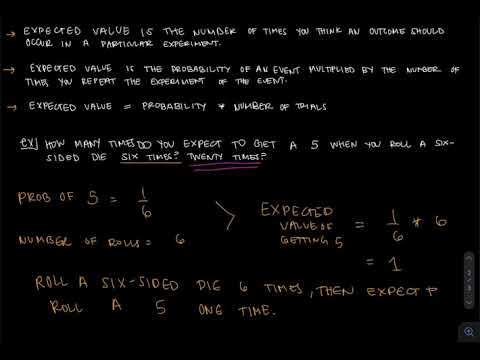 → EXPECTED VALUE IS THE NUMBER OF TIMES YOU THINK AN OUTCOME SHOULD
OCCUR IN A PARTICULAR EXPERIMENT.
→ EXPECTED VALUE IS THE PROBABILITY OF AN EVENT MULTIPLIED BY THE NUMBER OF
TIMES YOU REPEAT THE EXPERIMENT OF THE EVENT.
→ EXPECTED VALUE = PROBABILITY * NUMBER OF TRIALS
ex] HOW MANY TIMES DO YOU EXPECT TO GET A 5 WHEN YOU ROLL A SIX-
SIDED DIE SIX TIMES? TWENTY TIMES?
PROB OF 5 = 1/6
NUMBER OF ROLLS = 6
> EXPECTED
VALUE OF
GETTING 5 = 1/6 * 6
= 1
ROLL A SIX-SIDED DIE 6 TIMES, THEN EXPECT TO
ROLL A 5 ONE TIME.